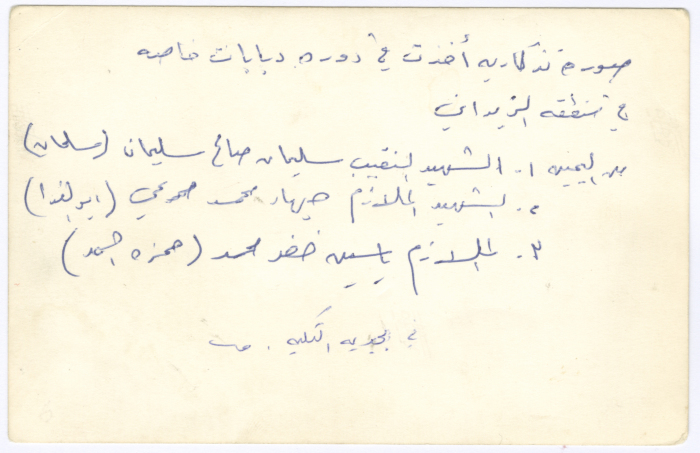 صورة تذكاريه أخذت في دوره دبابات خاصه
في منطقه الزبداني
من اليمين ١. الشهيد النقيب سليمان صالح سليمان (سلمان)
٢. الشهيد الملازم جهاد محمد (ابو الفدا)
٣. الملازم ياسين خضر محمد (حمزه
في الكليه .